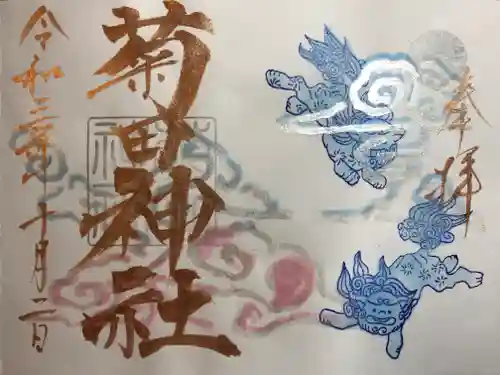 奉拝
菊田神社
令和三年十月二日